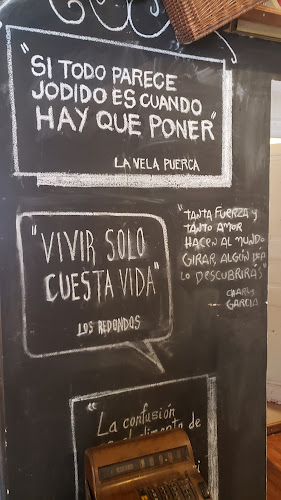 "SI TODO PARECE
JODIDO ES CUANDO
HAY QUE PONER"
LA VELA PUERCA
"VIVIR SÓLO
CUESTA VIDA"
LOS REDONDOS
"TANTA FUERZA Y
TANTO AMOR
HACEN AL MUNDO
GIRAR, ALGÚN DIA
LO DESCUBRIRAS"
CHARLY
GARCIA
"La confusión
alimento de